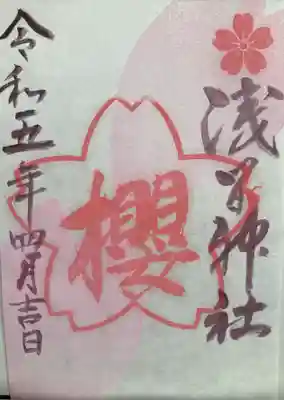 浅間神社
櫻
令和五年四月吉日